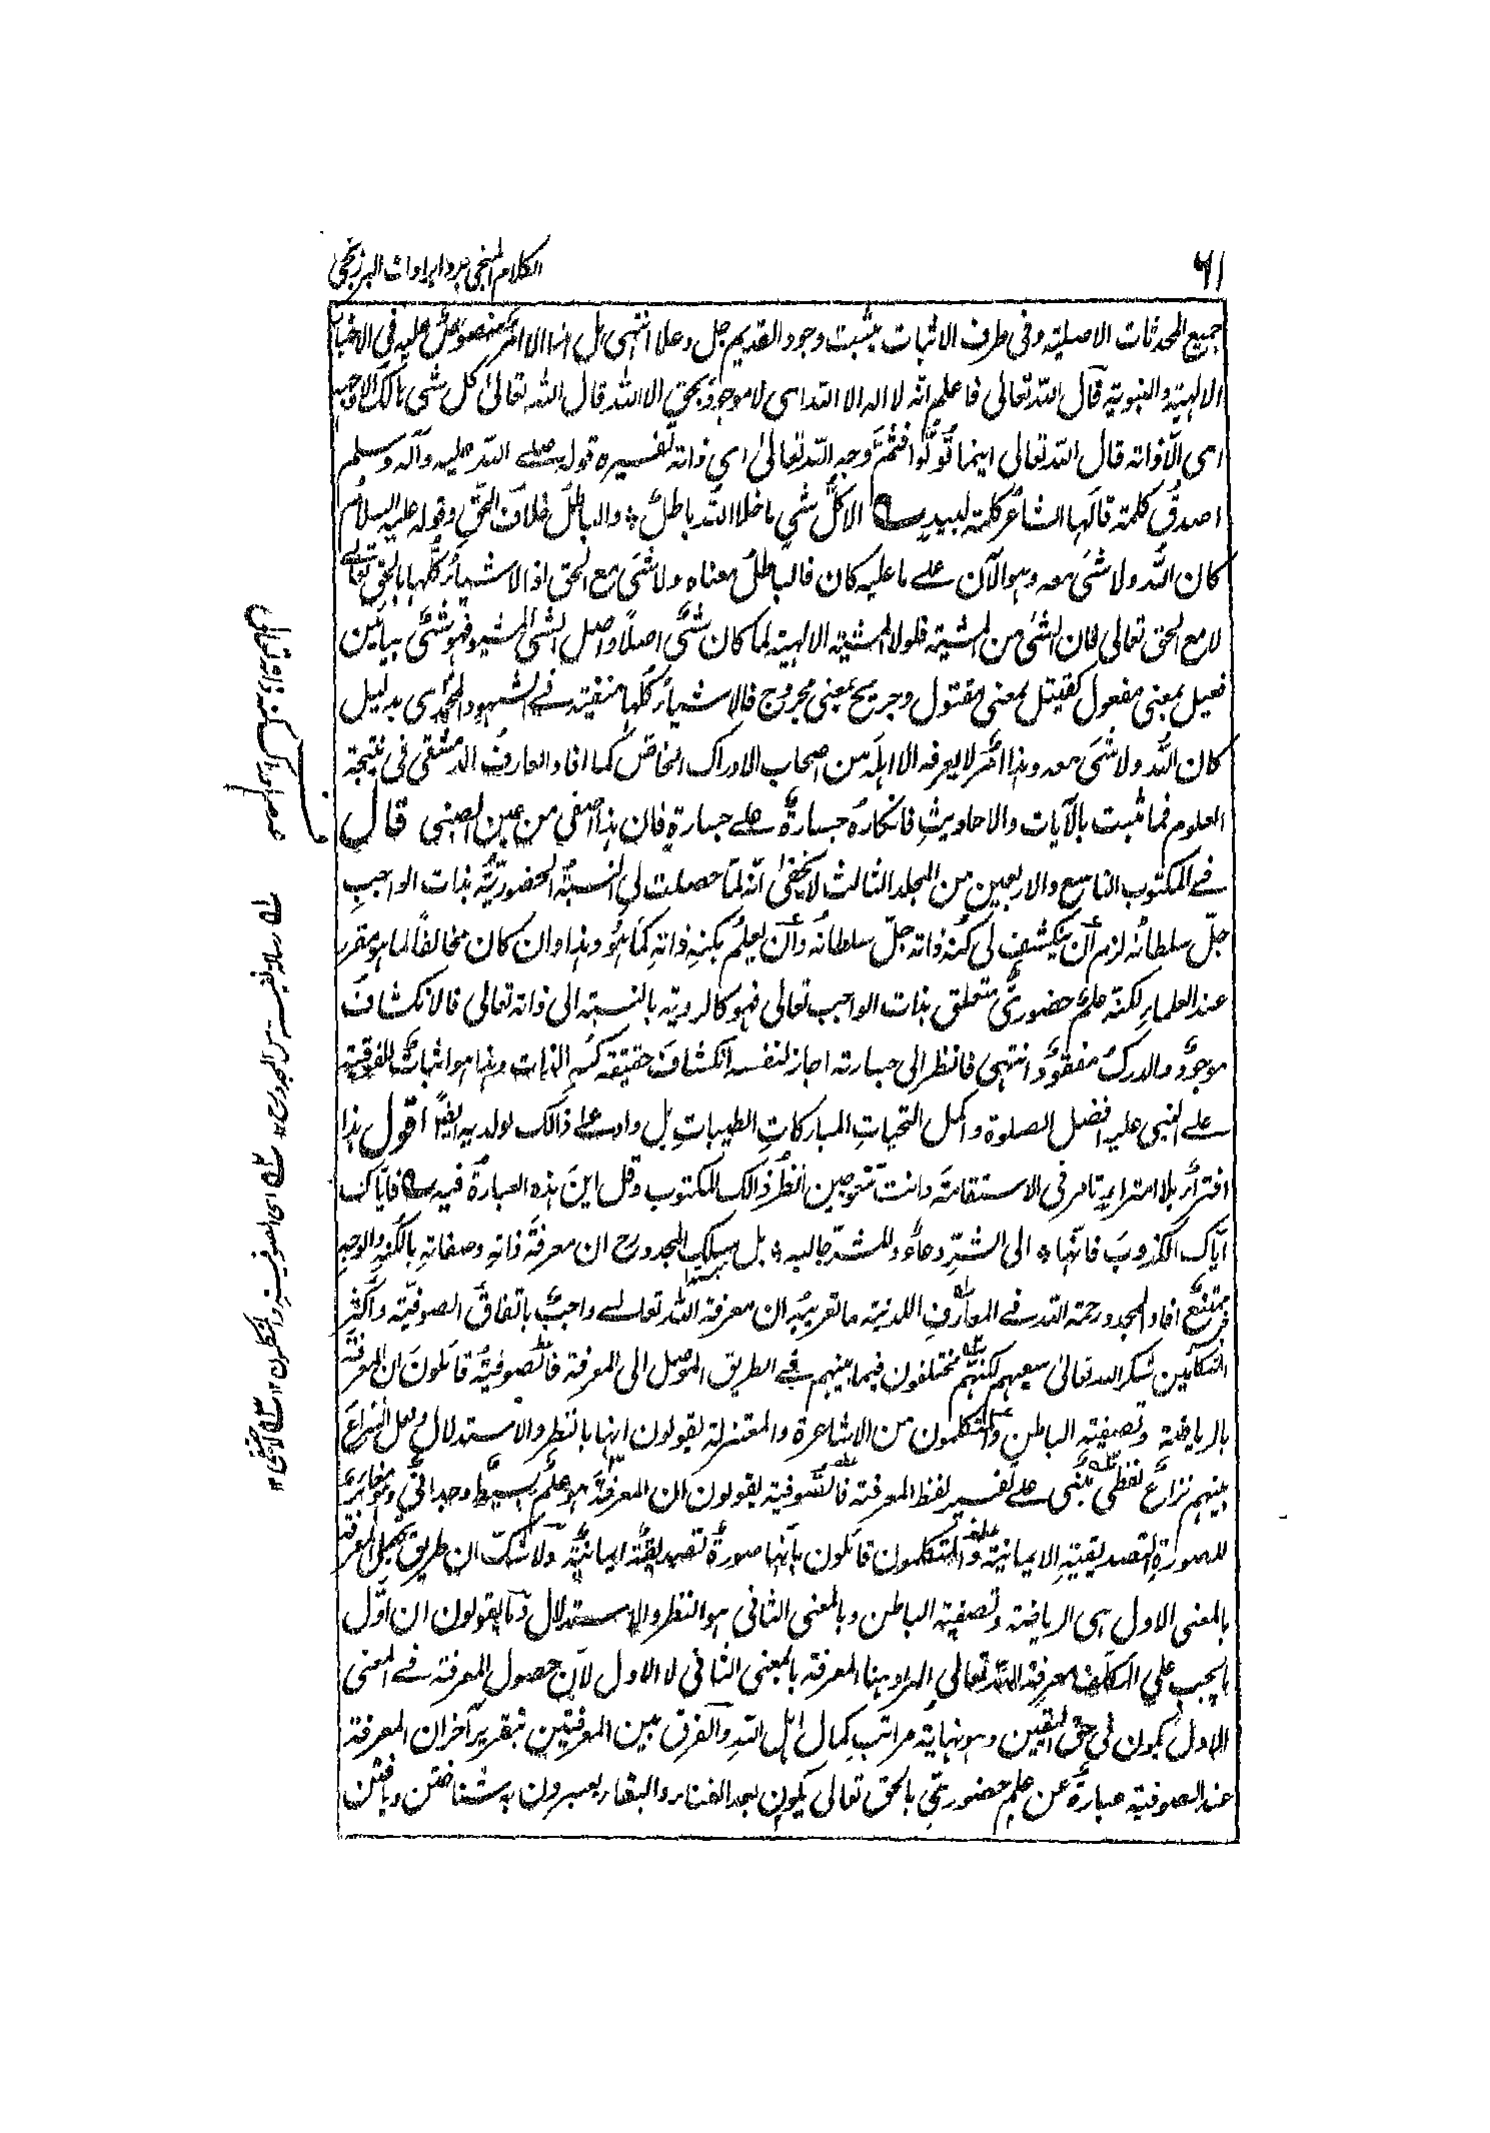 ٦١
الكلام المنجى برد ايرادات البرزنجى
جميع المحدثات الاصلية وفى طرف الاثبات يثبت وجود القديم جل وعلا انتهى بل هذا الامر منصوص عليه فى الاخبار
الالهية والنبوية قال الله تعالى فاعلم انه لا اله الا الله اى لا موجود بحق الا الله قال الله تعالىٰ كل شئ هالك الا وجهه
اى الّا ذاته قال الله تعالى اينما تُوَلُّوا فثَمَّ وجه الله تعالىٰ اى ذاته تفسيره قوله صلے الله عليه وآله وسلم
اصدق كلمة قالها الشاعر كلمة لبيد الا كلُّ شئ ما خلا اللهَ باطلٌ والباطل خلاف الحق وقوله عليه السلام
كان اللهُ ولا شئَ معه وهو الآن علے ما عليه كان فالباطلُ معناه ولا شئَ مع الحق اذ الاشياءُ كلُّها بالحق تعالےٰ
لا مع الحق تعالى فان الشئ من المشية فلولا المشية الالهية لما كان شئٌ اصلًا واصل الشئ المشيو فهو شئٌ بيائين
فعيل بمعنى مفعول كقتيل بمعنى مقتول وجريح بمعنى مجروح فالاشياءُ كلُّها منفية فے الشهود المحمّدى بدليل
كان اللهُ ولا شئَ معه وهذا امرٌ لا يعرفه الا اهلُه من اصحاب الادراك الخاصّ كما افاد العارف الدمشقى فى نتيجة
العلوم فما ثبت بالآيات والاحاديثِ فانكارُه جسارةٌ علے جسارةٍ فان هذا اصفى من عين الصفى قال
فے المكتوب التاسع والاربعين من المجلد الثالث لا يخفىٰ انّه لمّا حصلت لى النسبةُ الحضوريّةُ بذات الواجبِ
جلّ سلطانُه لزم أن ينكشف لى كُنهُ ذاته جلّ سلطانُه وأن يُعلَمَ بكنهِ ذاتِه كما هُوَ وهذا وان كان مخالفًا لما هو مقرر
عند العلماءِ لكنّه علمٌ حضوريٌّ متعلق بذات الواجب تعالى فهو كالروية بالنسبة الى ذاته تعالى فالانكشافُ
موجودٌ والدركُ مفقودٌ انتهى فانظر الى جسارته اجاز لنفسه انكشافَ حقيقة كنهِ الذات وهذا هو اثباتُ الفوقية
علے النبى عليه افضل الصلوة واكمل التحياتِ المباركاتِ الطيباتِ بل واد علےٰ ذالك لولديه ايضًا اقول هذا
افتراءٌ بلا امتراءٍ تامر فى الاستقامة وانت تعوجين انظر ذالك المكتوب وقل اينَ هذه العبارةُ فيه فايّاكَ
ايّاك الكذوبَ فانّها الى الشرِّ دعاءٌ وللشرّ جالبه بل مسلك المجدد رح ان معرفةَ ذاتِه وصفاتِه بالكُنهِ والوجهِ
ممتنعٌ افاد المجدد رحمة الله فے المعارفِ اللدنية ما تعريبُه ان معرفة الله تعالےٰ واجبٌ باتفاق الصوفيّة واكثر
المتكلمين شكر الله تعالىٰ سعيهم لكنهم مختلفون فيما بينهم فے الطريق الموصل الى المعرفة فالصوفيّةُ قائلونَ ان المعرفةَ
بالرياضة وتصفية الباطن والمتكلمون من الاشاعرة والمعتزلة يقولون انها بالنظر والاستدلال ولعل النزاعَ
بينهم نزاعٌ لفظى يُبنى علے تفسير لفظ المعرفة فالصوفية يقولون ان المعرفةَ هو علمٌ بسيطٌ وجدانىٌّ ومغايرٌ
للصورةِ التصديقيةِ الايمانيّةِ والمتكلمون قائلون بأنها صورةٌ تصديقيّةٌ ايمانيّةٌ ولا شكّ ان طريق تحصيل المعرفة
بالمعنى الاول هى الرياضة وتصفية الباطن وبالمعنى الثانى هو النظر والاستدلال وما يقولون ان اوّل
ما يجب على المكلف معرفة الله تعالى المراد ههنا المعرفة بالمعنى الثانى لا الاول لأن حصول المعرفة فے المعنى
الاول يكون فى حق اليقين وهو نهاية مراتب كمال اهل الله والفرق بين المعرفتين بتقرير آخر ان المعرفة
عند الصوفية عبارةٌ عن علم حضورىّ بالحق تعالى يكون بعد الفناء والبقاء يعبرون به شناختن ويافتن